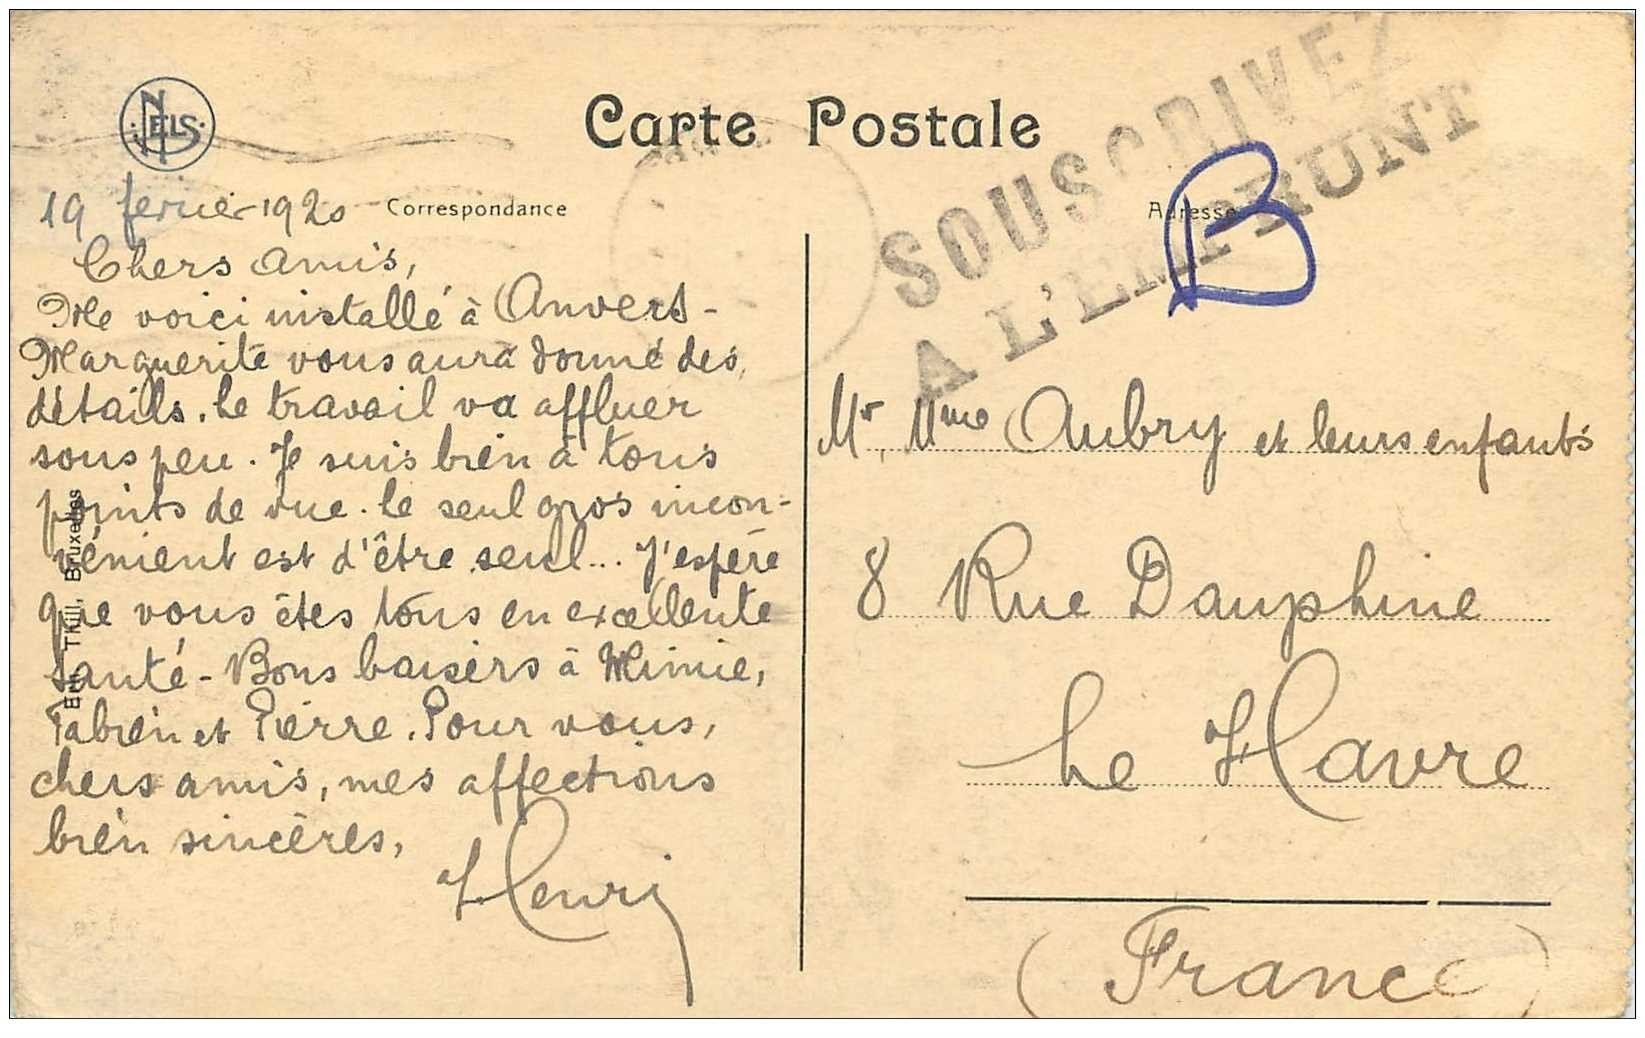 Carte Postale
NELS
SOUSCRIVEZ
A L'EMPRUNT
B
Correspondance
Adresse
19 fevrier 1920
Chers amis,
Me voici installé à Anvers -
Marguerite vous aura donné des
détails. Le travail va affluer
sous peu. Je suis bien à tous
points de vue. Le seul gros incon-
vénient est d'être seul... J'espère
que vous êtes tous en excellente
santé - Bons baisers à Mimie,
Fabien et Pierre. Pour vous,
chers amis, mes affections
bien sincères,
Henri
Thill, Bruxelles
Mr, Mme Aubry et leurs enfants
8 Rue Dauphine
Le Havre
(France)